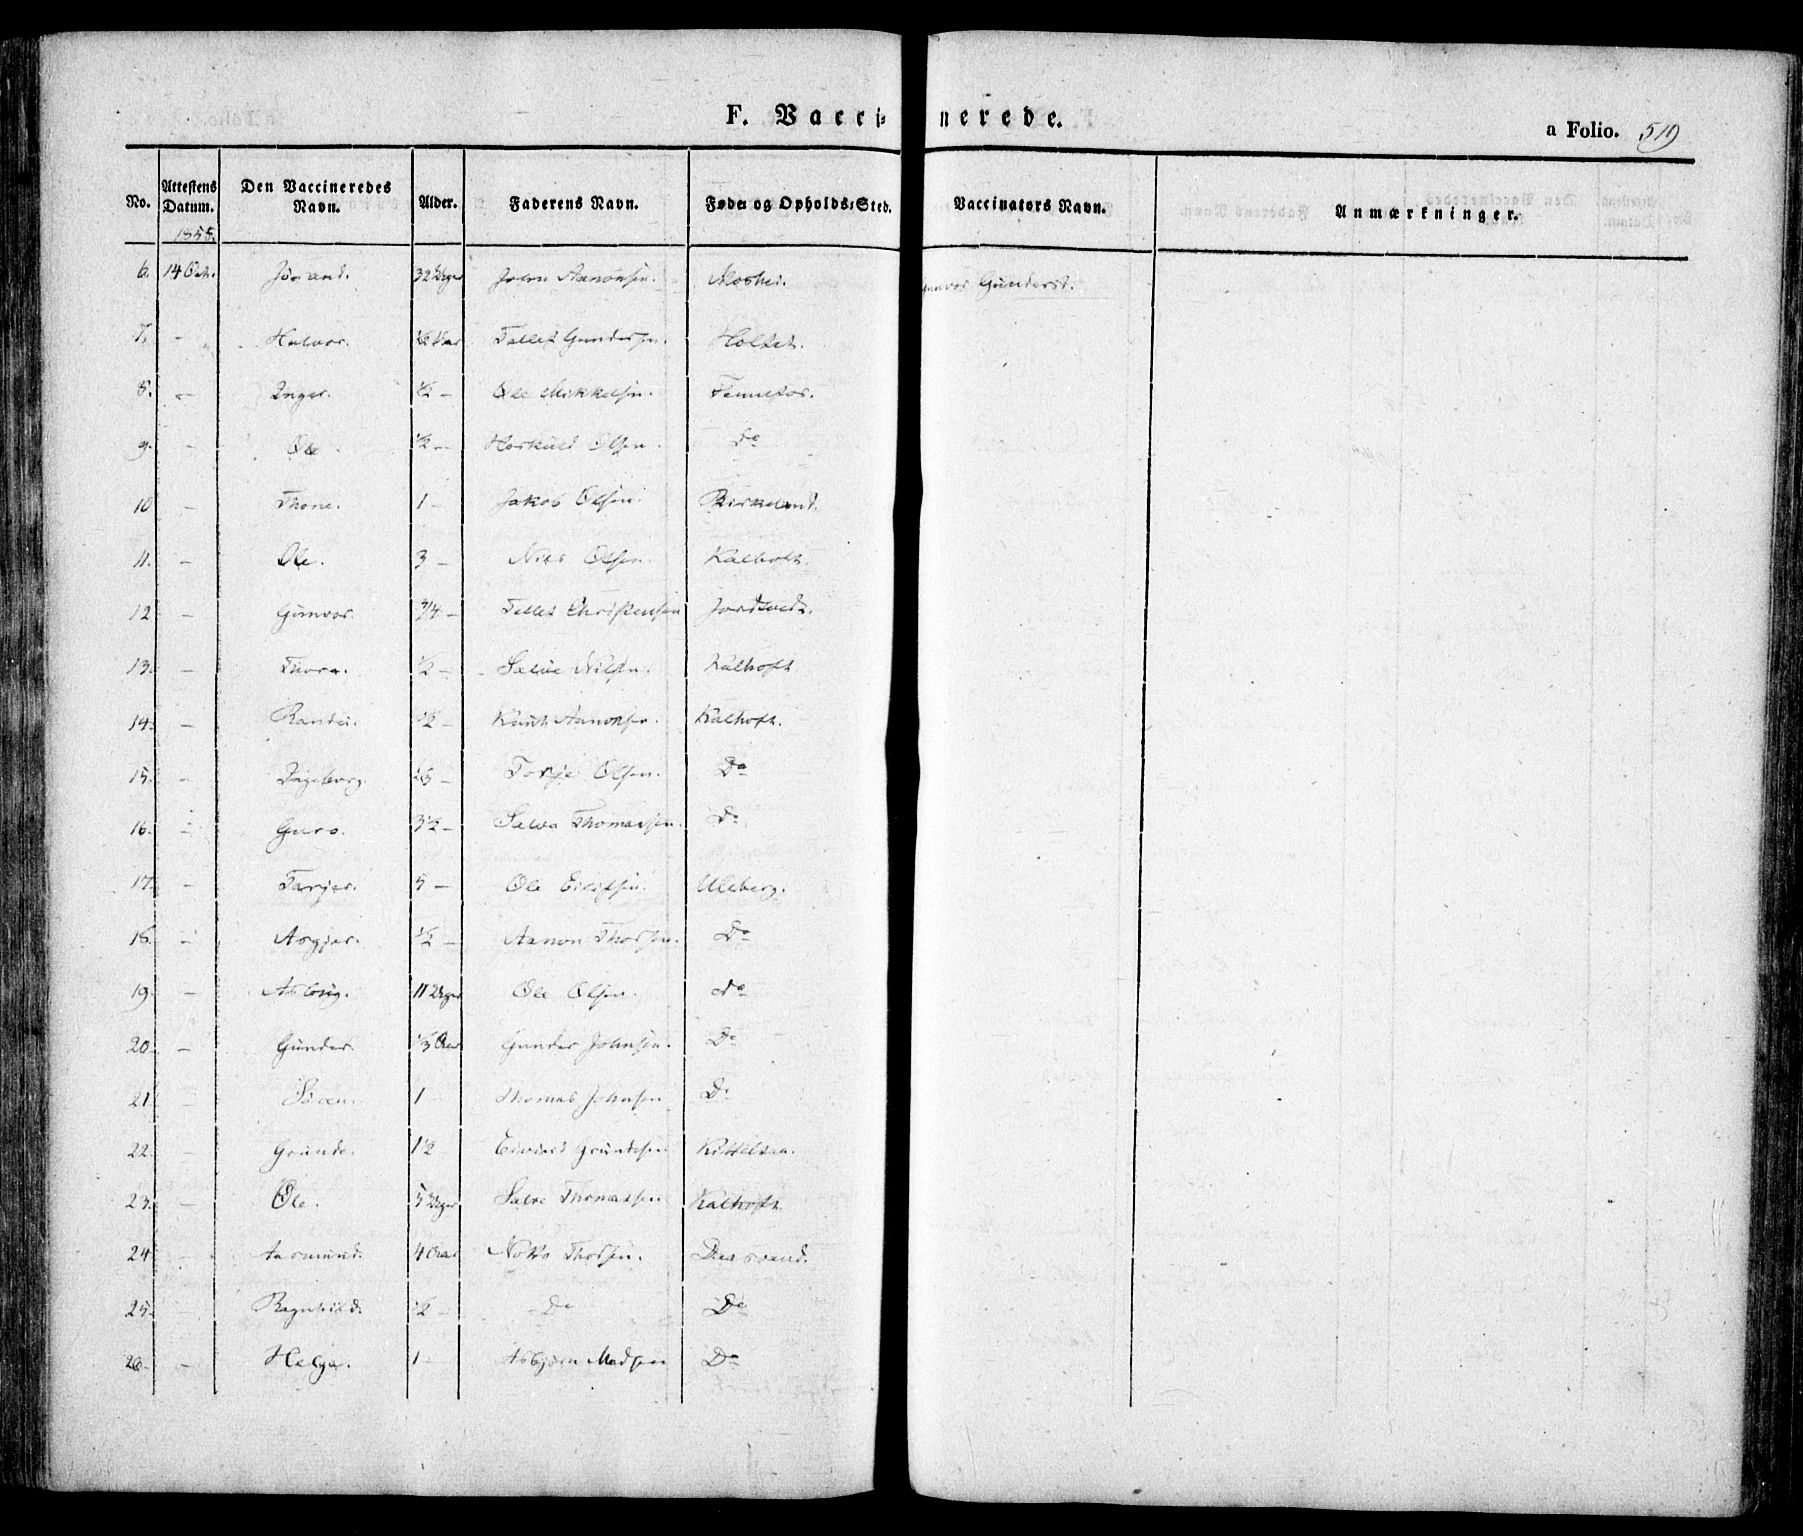 F. Vacci- nerede.
a Folio. 519
No. | Attestens Datum. 1858. | Den Vaccineredes Navn. | Alder. | Faderens Navn. | Føde- og Opholds-Sted. | Vaccinators Navn. | Anmærkninger.
6. | 14 Oct. | Jorand. | 32 Uger | John Aanonsen. | Moshei. | Gunvor Gunderst.
7. | - | Halvor. | ½ Aar | Tallef Gundersen. | Holtet.
8. | - | Inger. | ½ - | Ole Mikkelsen. | Fennefos.
9. | - | Ole | ½ - | Horkuld Olsen. | Do
10 | - | Thone. | 1 - | Jakob Olsen. | Birkeland.
11. | - | Ole. | 3 - | Niels Olsen. | Kalhoft.
12 | - | Gunvor. | 3/4 - | Tallef Christensen | Jordtveds.
13. | - | Thora. | ½ - | Salve Nilsen. | Kalhoft
14. | - | Randei. | ½ - | Knut Aanonsen. | Kalhoft.
15. | - | Ingeborg. | - | Torje Olsen. | Do
16. | - | Guro. | 3½ - | Salve Thomassen. | Do
17. | - | Tarjer. | 5 - | Ole Eilefsen. | Uleberg.
18. | - | Asgjer. | ½ - | Aanon Thorsen. | Do
19. | - | Aslaug. | 11 Uger | Ole Olsen. | do
20. | - | Gunder. | ⅓ Aar | Gunder Johnsen. | Do
21 | - | Søren. | 1 | Thomas Johnsen | Do
22. | - | Grunde. | 1½ | Eivind Grundesen | Kittelsaa.
23. | - | Ole. | 5 Uger | Salve Thomassen | Kalhoft.
24 | - | Aasmund. | 4 Aar | Thorsen. | Daasvand.
25. | - | Ragnhild. | ½ - | Do | Do
26. | - | Helge. | 1 - | Asbjørn Madsen | Do